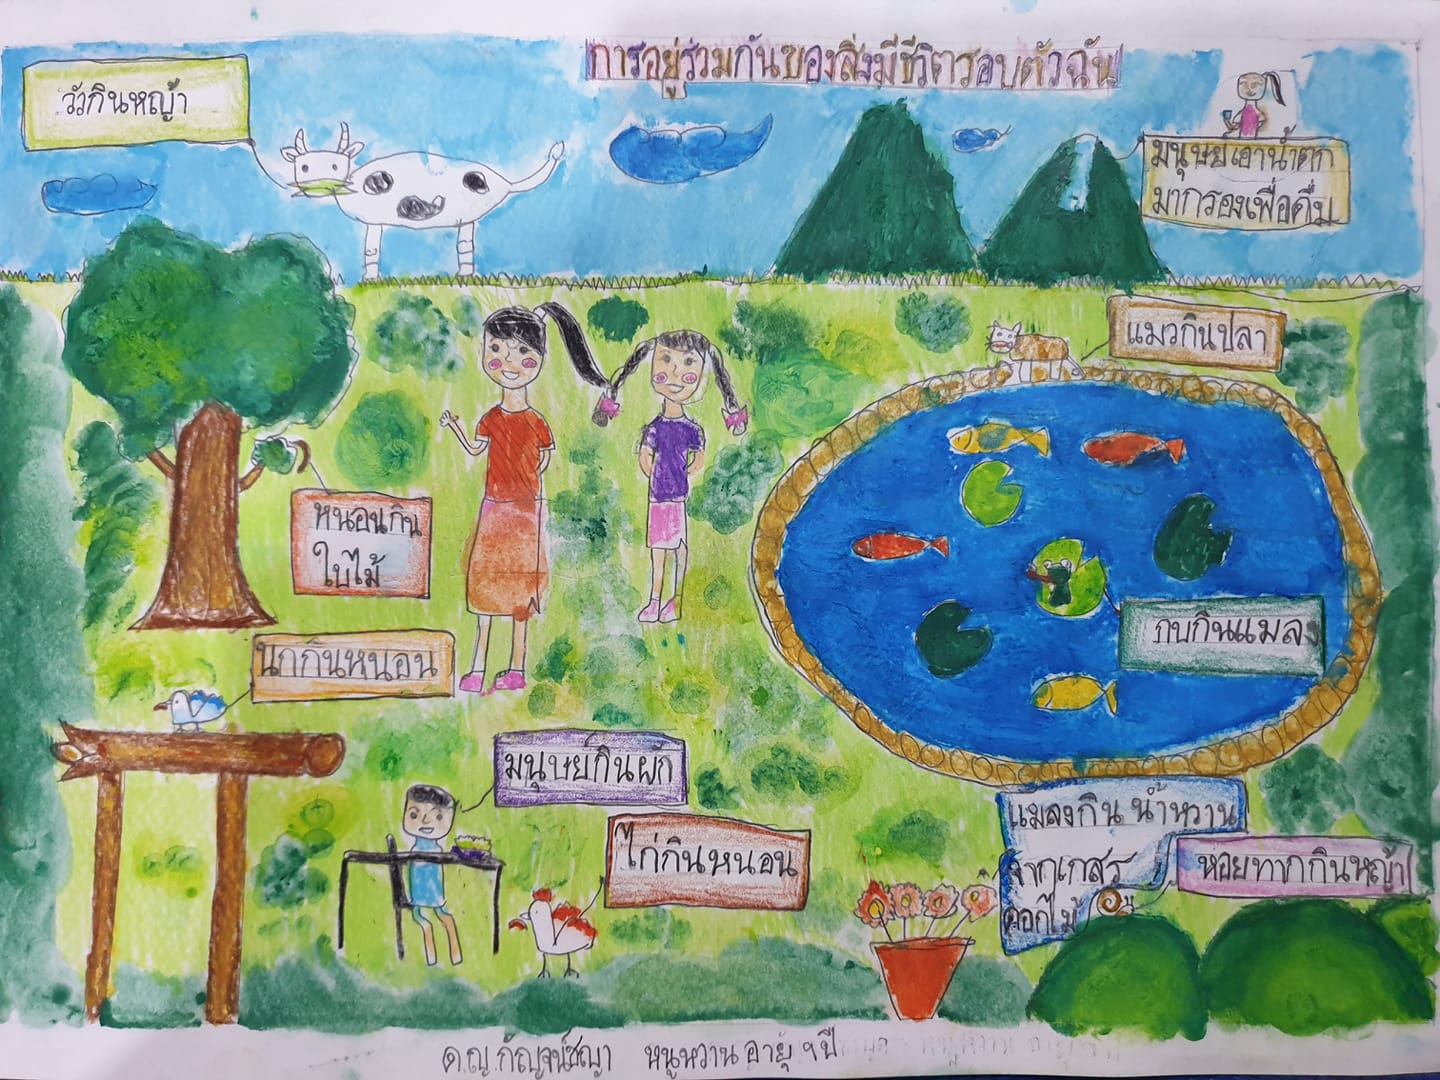 การอยู่ร่วมกันของสิ่งมีชีวิตรอบตัวฉัน
วัวกินหญ้า
มนุษย์เอาน้ำตก
มากรองเพื่อดื่ม
แมวกินปลา
หนอนกิน
ใบไม้
กบกินแมลง
นกกินหนอน
มนุษย์กินผัก
ไก่กินหนอน
แมลงกินน้ำหวาน
จากเกสร
ดอกไม้
หอยทากกินหญ้า
ด.ญ.กัญจน์ชญา หนูหวาน อายุ ๆ ปี